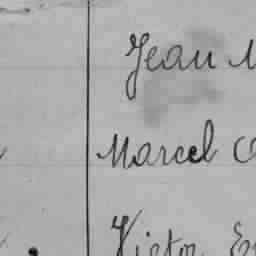 Jean
Marcel
Victor